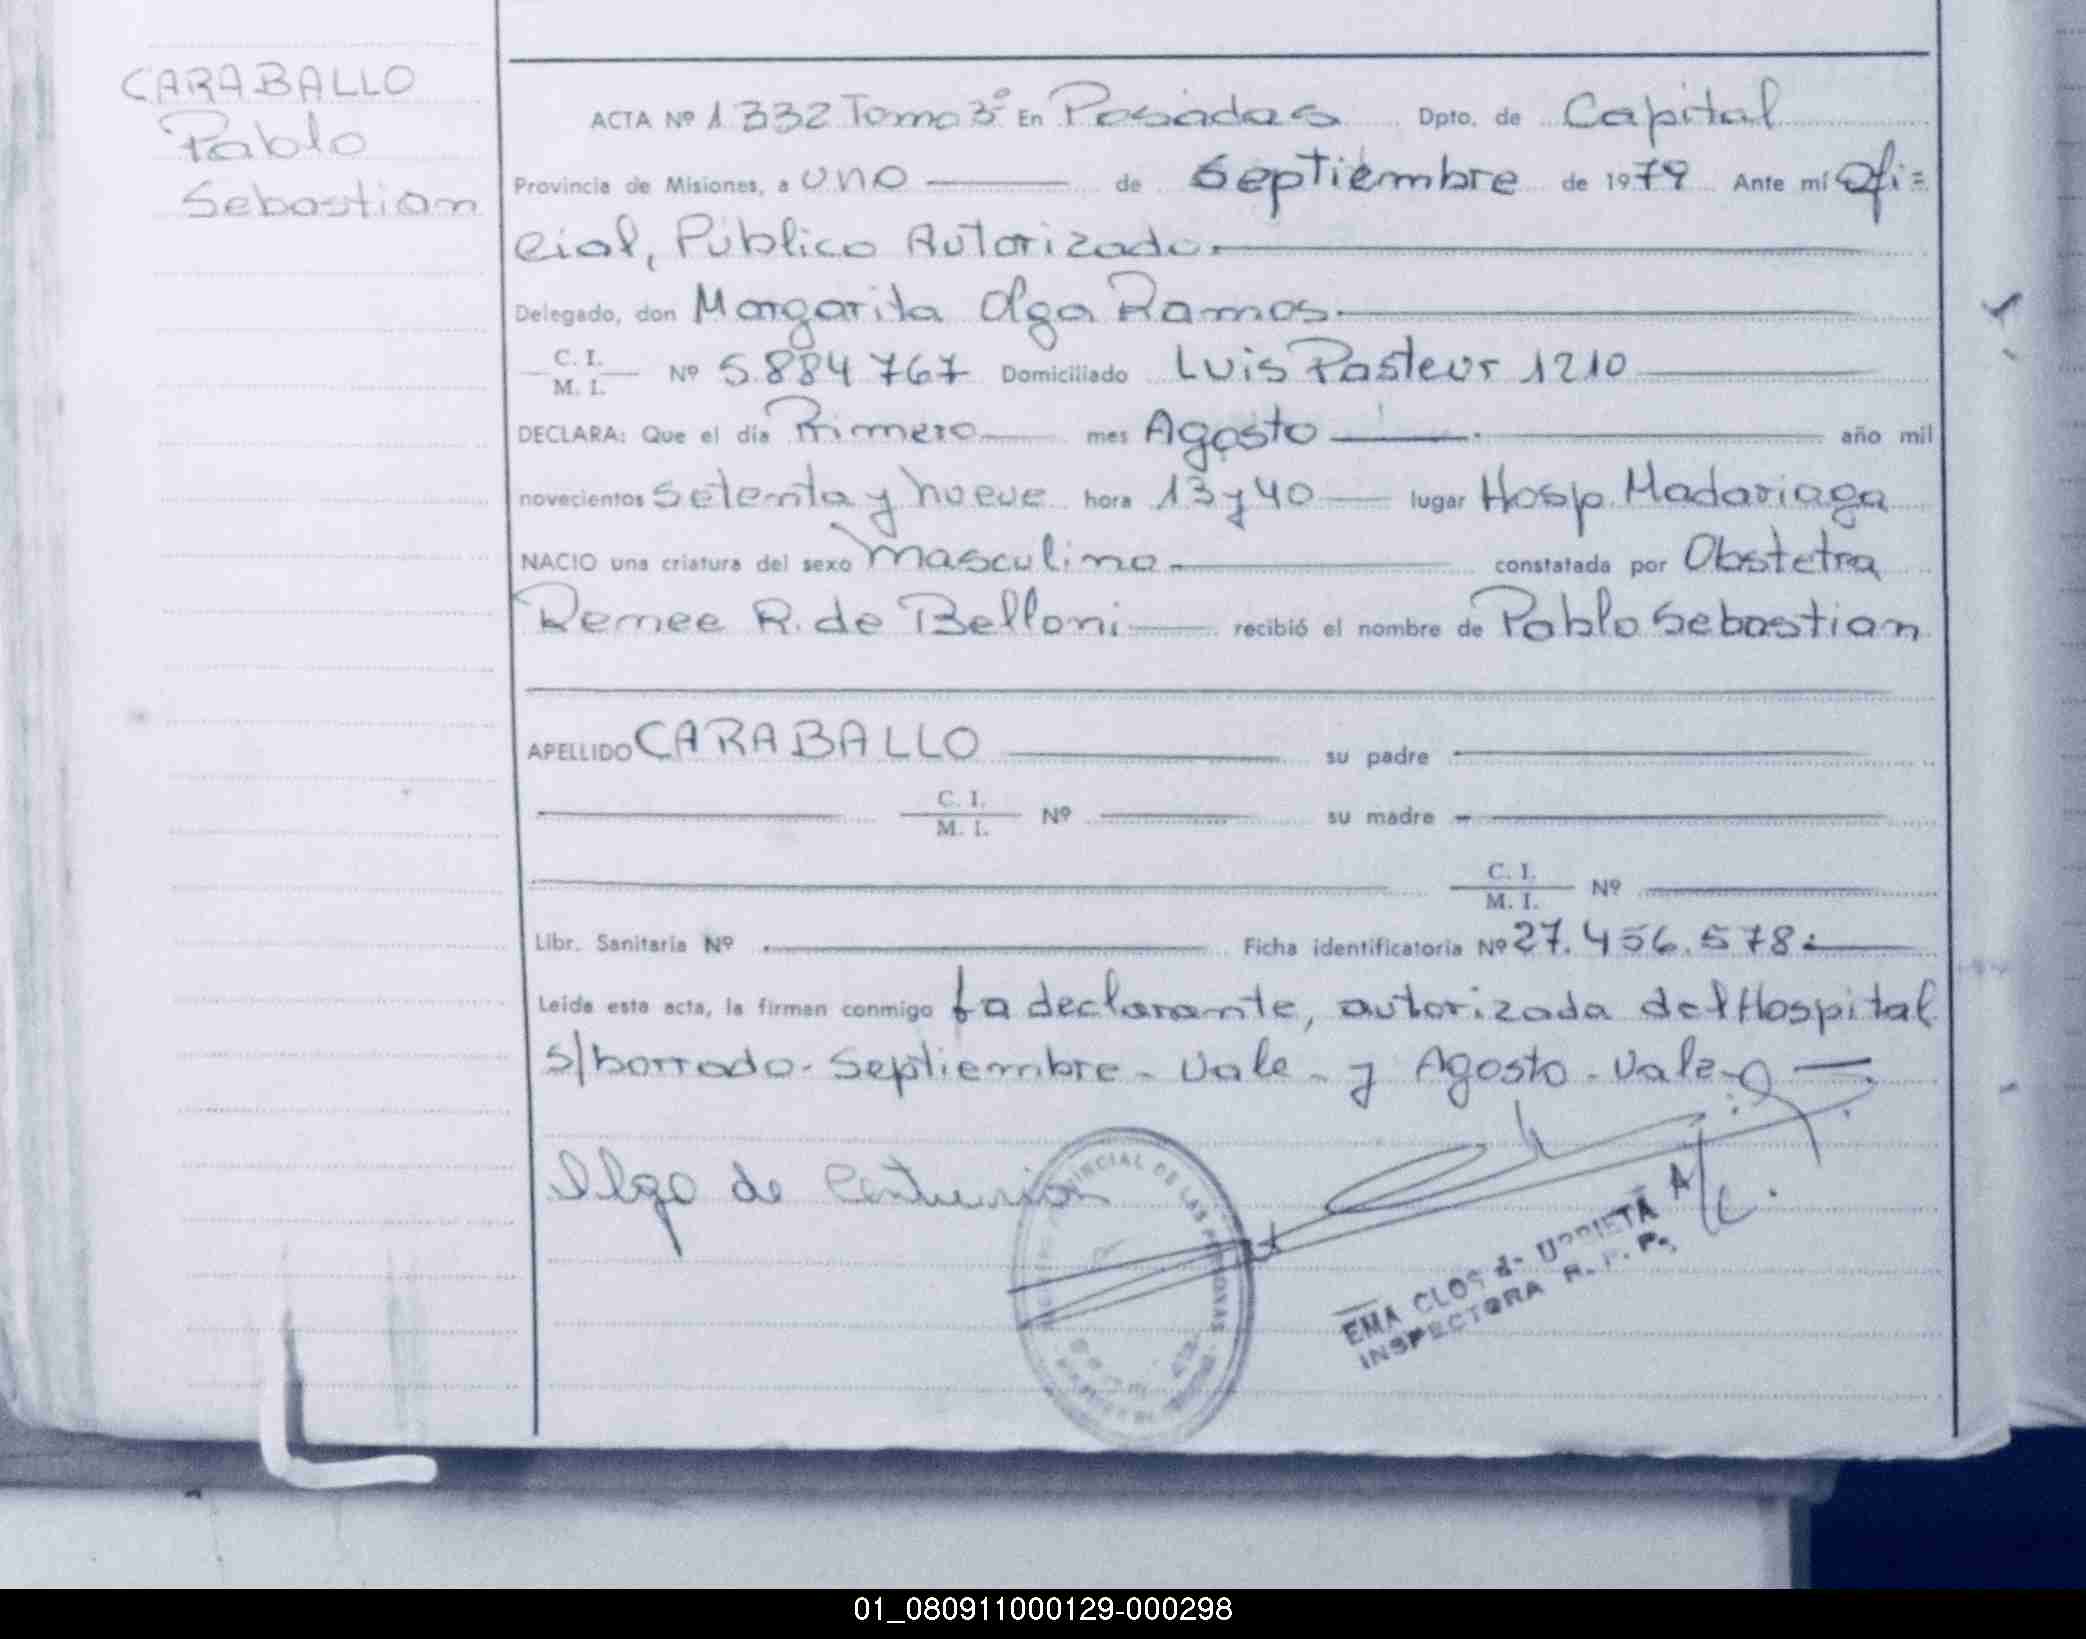 CARABALLO
Pablo
Sebastian
ACTA Nº 1332 Tomo 3º En Posadas Dpto. de Capital
Provincia de Misiones, a uno de Septiembre de 1979 Ante mí Ofi=
cial, Público Autorizado.
Delegado, don Margarita Olga Ramos.
C. I.
M. I. Nº 5.884767 Domiciliado Luis Pasteur 1210
DECLARA: Que el día Primero mes Agosto año mil
novecientos setenta y nueve hora 13 y 40 lugar Hosp. Madariaga
NACIO una criatura del sexo masculino constatada por Obstetra
Renee R. de Belloni recibió el nombre de Pablo Sebastian
APELLIDO CARABALLO su padre
C. I.
M. I. Nº su madre
C. I.
M. I. Nº
Libr. Sanitaria Nº Ficha identificatoria Nº 27.456.578.
Leída esta acta, la firman conmigo La declarante, autorizada del Hospital
s/borrado. Septiembre - Vale - y Agosto - Vale
Olga de
A/C.
PROVINCIAL DE LAS PERSONAS
EMA CLOS de URRIETA
INSPECTORA R. P. P.
01_080911000129-000298